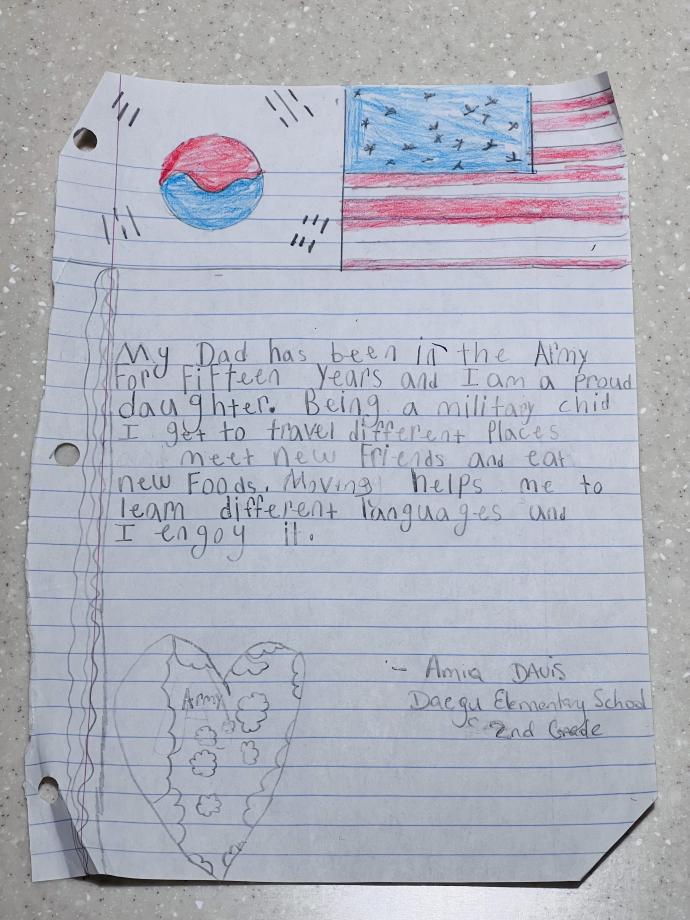 My Dad has been in the Army
For Fifteen Years and I am a proud
daughter. Being a military chid
I get to travel different Places
meet new Friends and eat
new Foods. Moving helps me to
learn different languages and
I enjoy it.
Army
- Amia DAVIS
Daegu Elementary School
2nd Grade